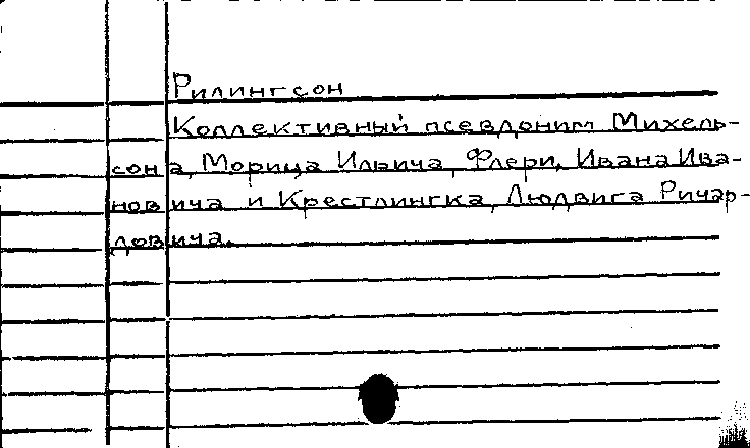 Рилингсон
Коллективный псевдоним Михель-
сона, Морица Ильича, Флери, Ивана Ива-
новича и Крестлингка, Людвига Ричар-
довича.